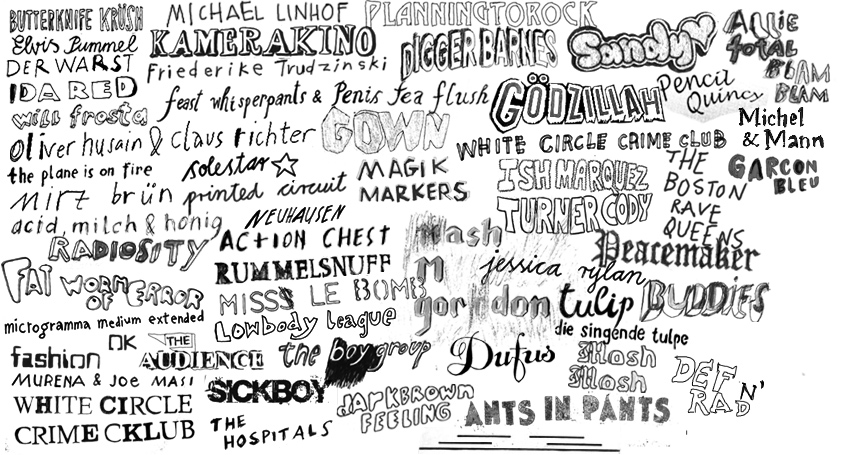 BUTTERKNIFE KRÜSH
MICHAEL LINHOF
PLANNINGTOROCK
ALLIE
Elvis Pummel
KAMERAKINO
DIGGER BARNES
Sandy
TOTAL
DER WARST
Friederike Trudzinski
BLAM
BLAM
IDA RED
feast whisperpants & Penis tea flush
GÖDZILLAH
Pencil
Quincy
will frosta
Michel
& Mann
oliver husain & claus richter
GOWN
WHITE CIRCLE CRIME CLUB
the plane is on fire
solestar
MAGIK
MARKERS
ISH MARQUEZ
THE
BOSTON
RAVE
QUEENS
GARCON
BLEU
mirz brün
printed circuit
TURNER CODY
acid, milch & honig
NEUHAUSEN
RADIOSITY
ACTION CHEST
Mash
M
gordon
Peacemaker
FAT WORM
OF ERROR
RUMMELSNUFF
jessica rylan
MISSS LE BOMB
tulip
BUDDIES
microgramma medium extended
Lowbody league
die singende tulpe
fashion
OK
THE
AUDIENCE
the boy group
Dufus
3Hosh
3Hosh
DEF
N'
RAD
MURENA & JOE MASI
SICKBOY
WHITE CIRCLE
CRIME CKLUB
THE
HOSPITALS
DARKBROWN
FEELING
ANTS IN PANTS